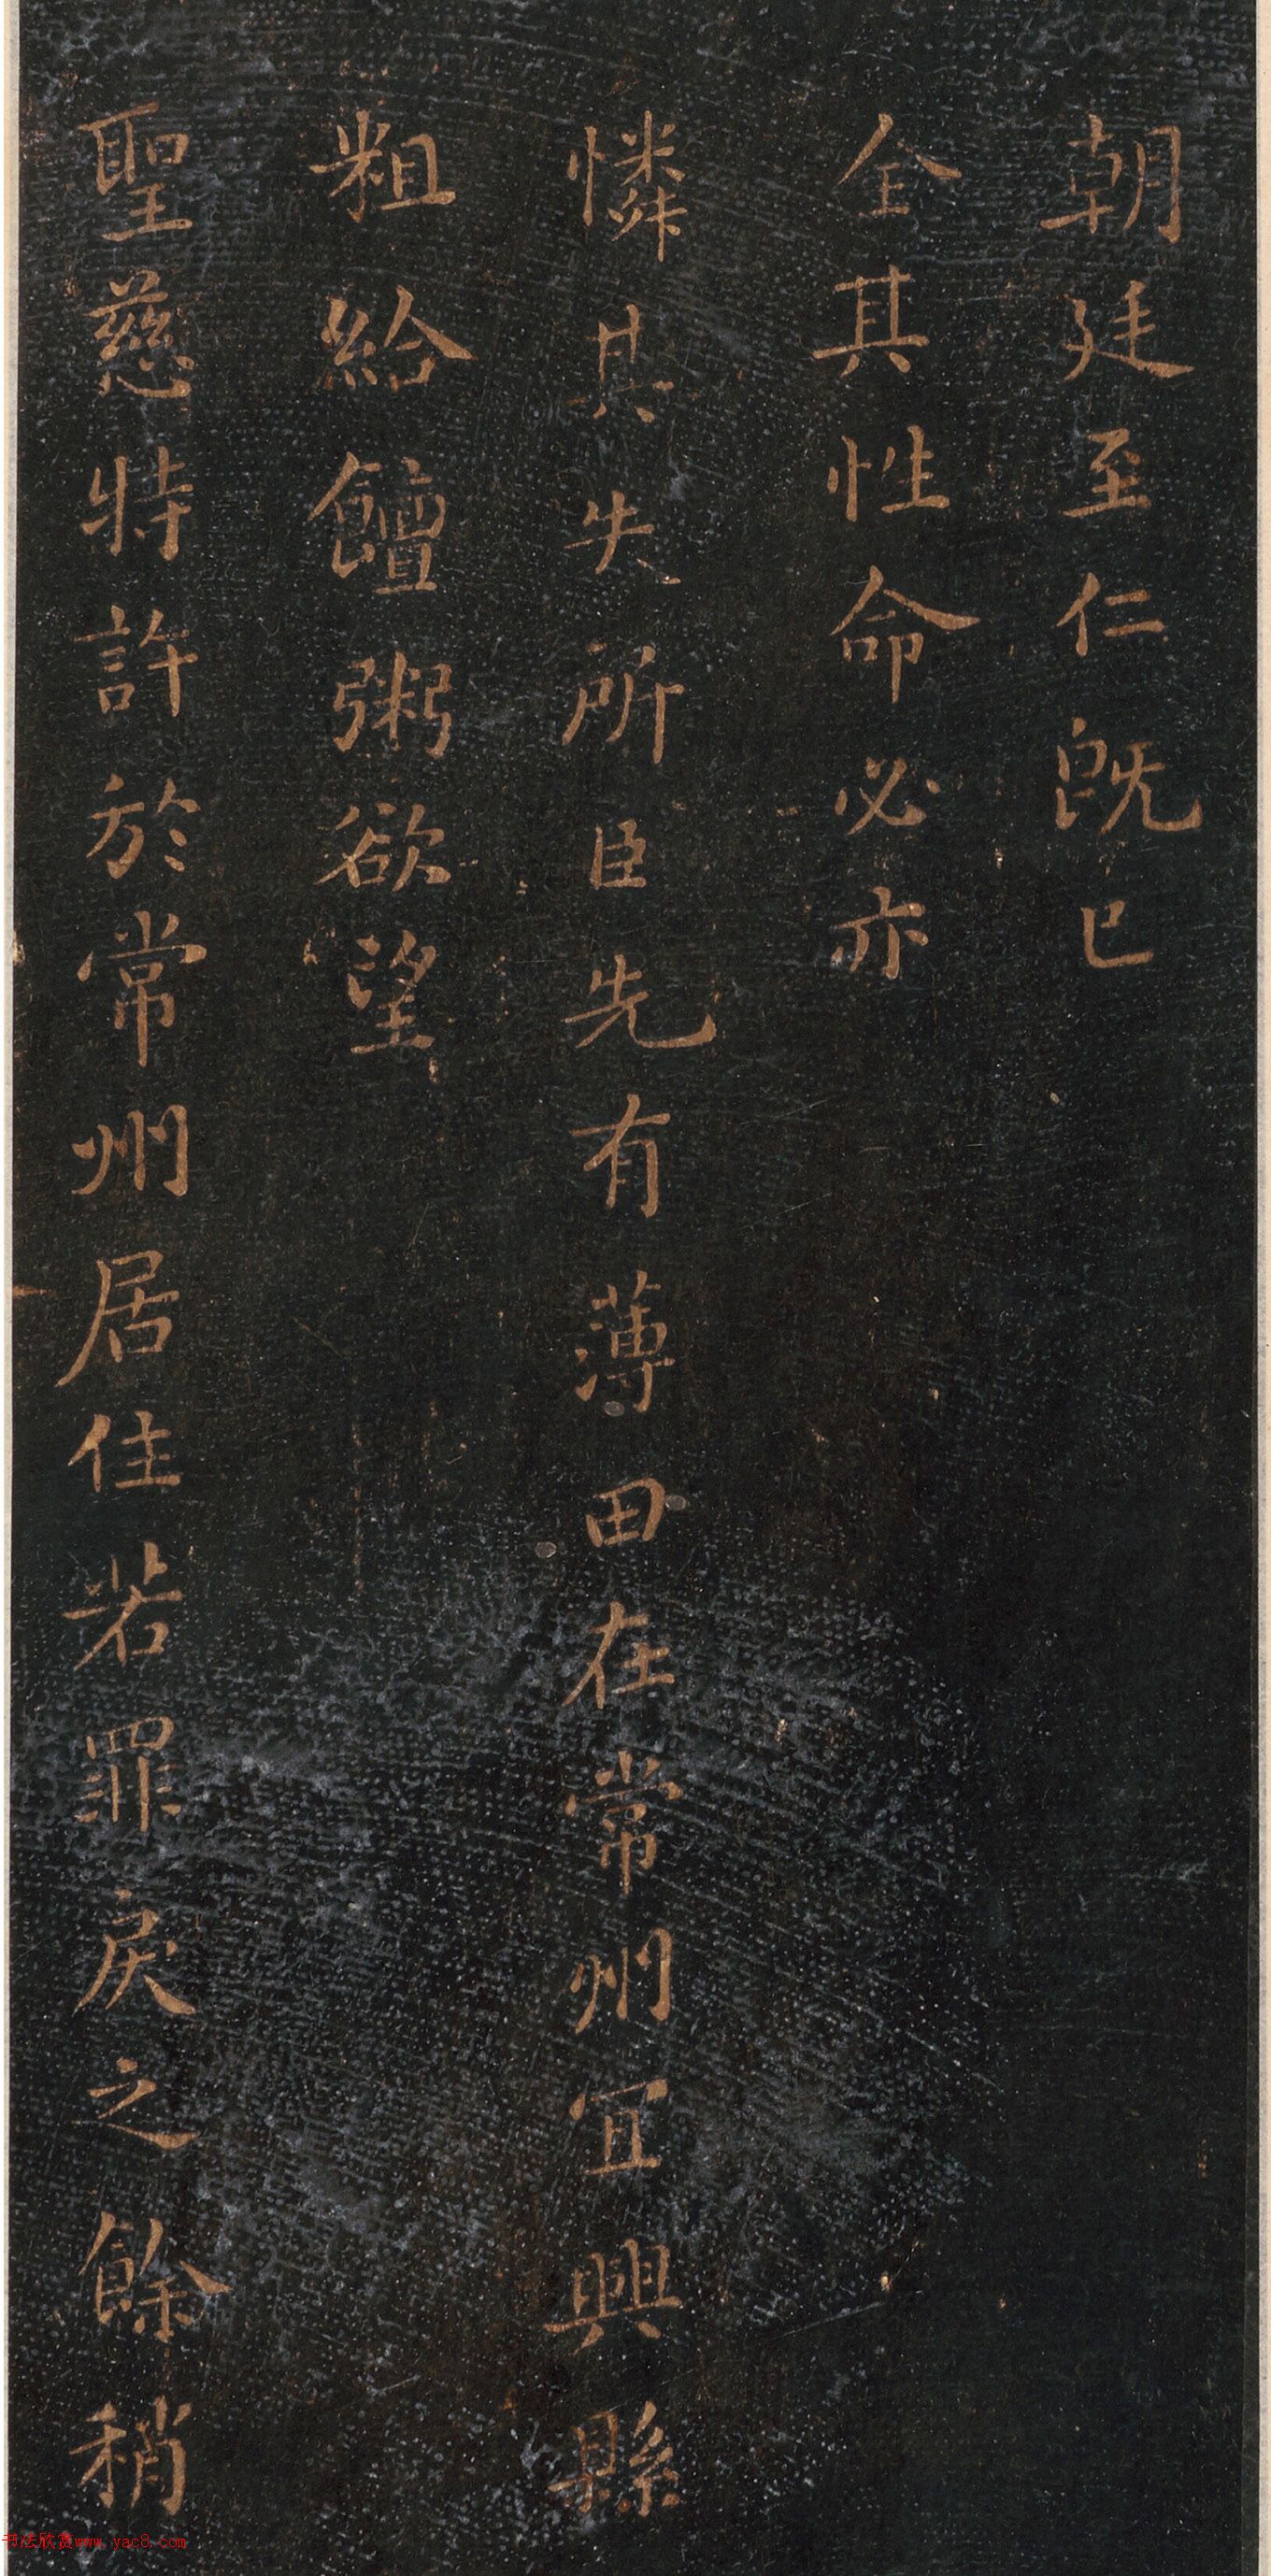 朝廷至仁既已
全其性命必亦
憐其失所臣先有薄田在常州宜興縣
粗給饘粥欲望
聖慈特許於常州居住若罪戾之餘稍
书法欣赏www.yac8.com